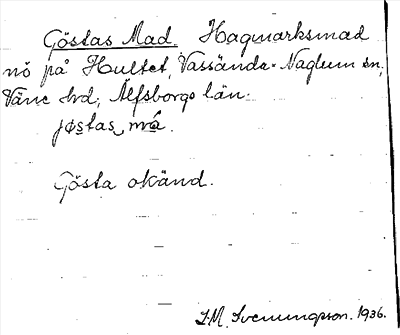 Göstas Mad. Hagmarksmad
nö på Hultet, Vassända-Naglum sn,
Väne hd, Älfsborgs län.
jøstas må.
Gösta okänd.
I.M. Svenungsson. 1936.